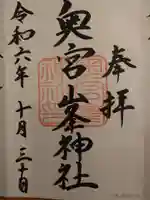 奉拝
奥宮山峯神社
令和六年十月三十日